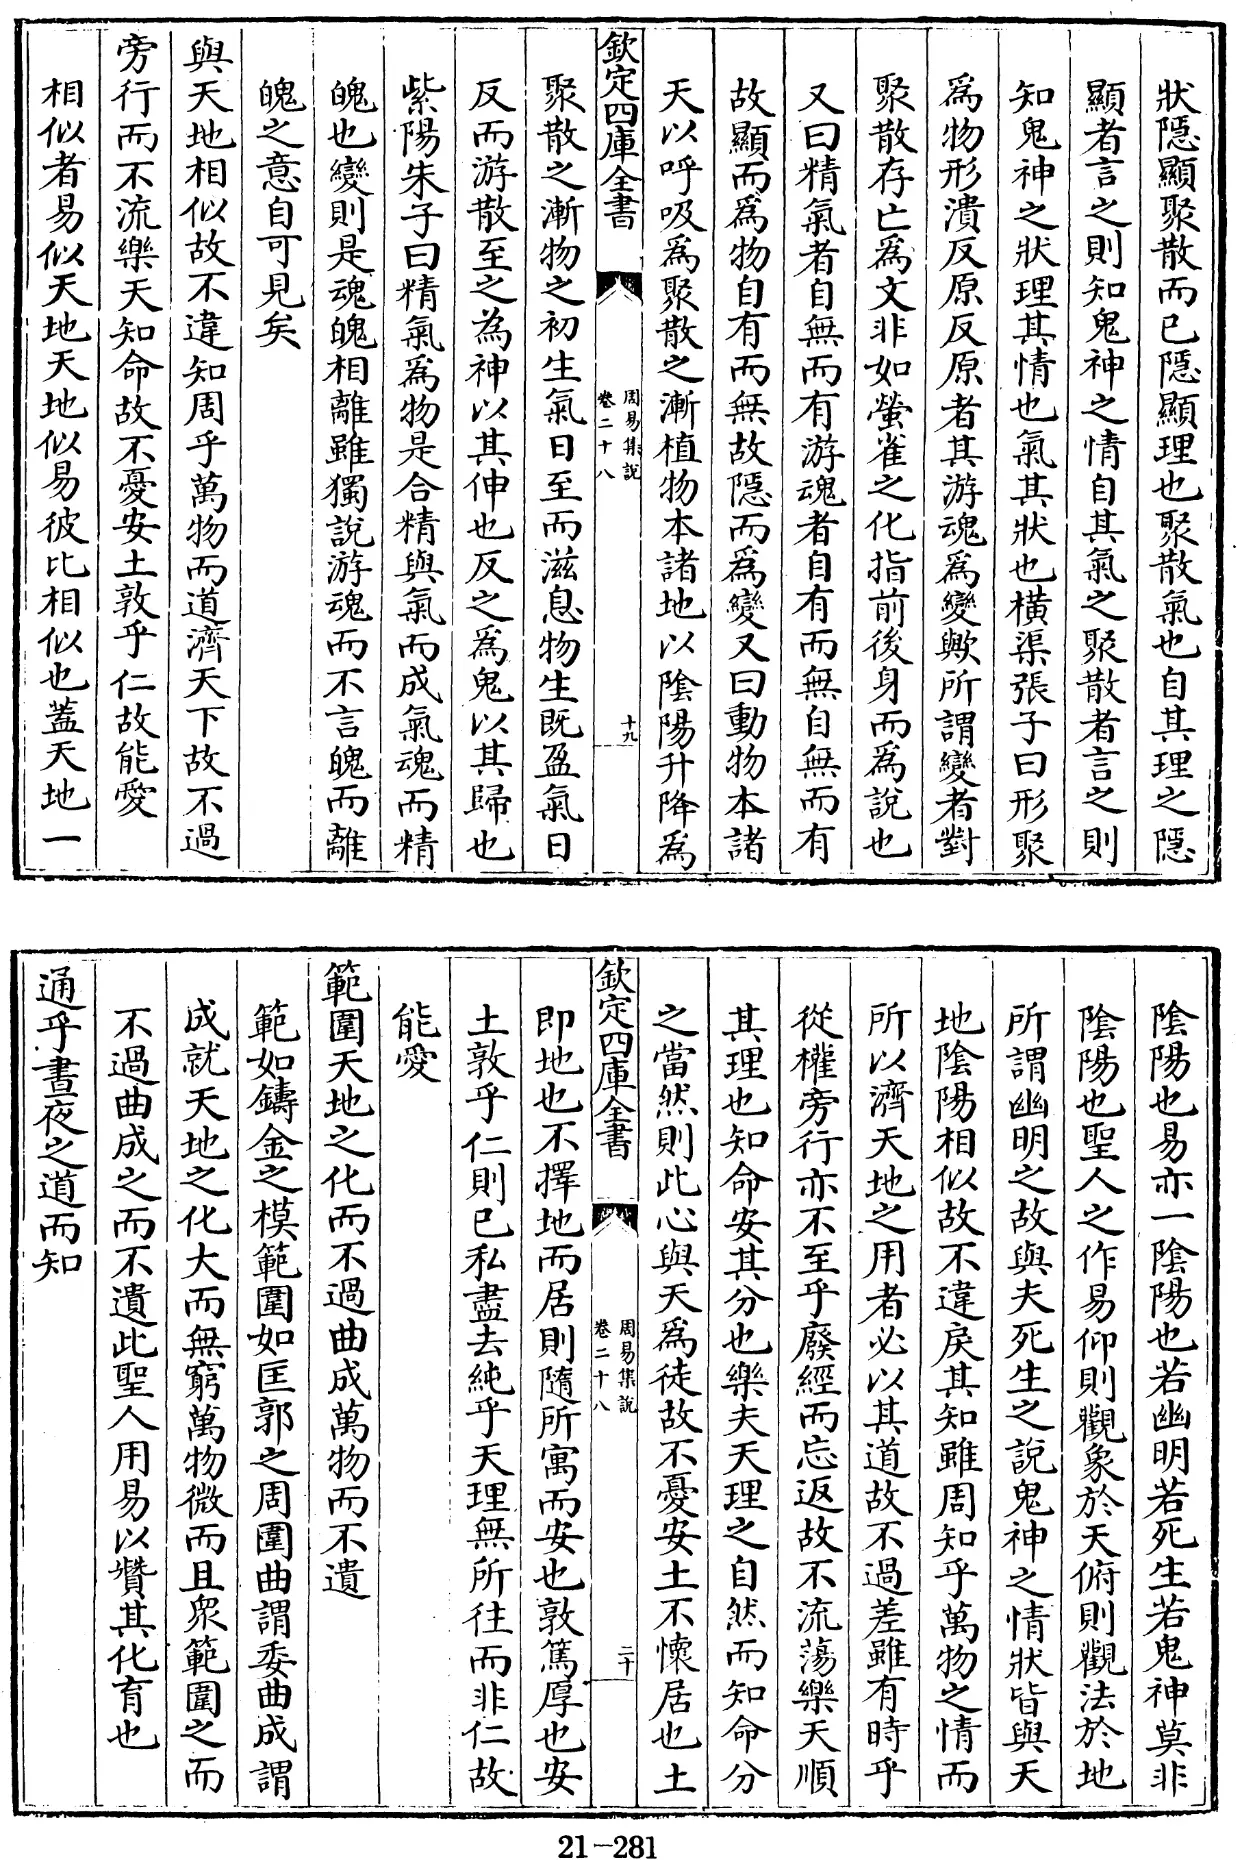 狀隱顯聚散而已隱顯理也聚散氣也自其理之隱
顯者言之則知鬼神之情自其氣之聚散者言之則
知鬼神之狀理其情也氣其狀也橫渠張子曰形聚
爲物形潰反原反原者其游魂爲變歟所謂變者對
聚散存亡爲文非如螢雀之化指前後身而爲說也
又曰精氣者自無而有游魂者自有而無自無而有
故顯而爲物自有而無故隱而爲變又曰動物本諸
天以呼吸爲聚散之漸植物本諸地以陰陽升降爲
欽定四庫全書
周易集說
卷二十八
十九
聚散之漸物之初生氣日至而滋息物生既盈氣日
反而游散至之為神以其伸也反之爲鬼以其歸也
紫陽朱子曰精氣爲物是合精與氣而成氣魂而精
魄也變則是魂魄相離雖獨說游魂而不言魄而離
魄之意自可見矣
與天地相似故不違知周乎萬物而道濟天下故不過
旁行而不流樂天知命故不憂安土敦乎仁故能愛
相似者易似天地天地似易彼比相似也蓋天地一
陰陽也易亦一陰陽也若幽明若死生若鬼神莫非
陰陽也聖人之作易仰則觀象於天俯則觀法於地
所謂幽明之故與夫死生之說鬼神之情狀皆與天
地陰陽相似故不違戾其知雖周知乎萬物之情而
所以濟天地之用者必以其道故不過差雖有時乎
從權旁行亦不至乎廢經而忘返故不流蕩樂天順
其理也知命安其分也樂夫天理之自然而知命分
之當然則此心與天爲徒故不憂安土不懷居也土
欽定四庫全書
周易集說
卷二十八
二十
即地也不擇地而居則隨所寓而安也敦篤厚也安
土敦乎仁則已私盡去純乎天理無所往而非仁故
能愛
範圍天地之化而不過曲成萬物而不遺
範如鑄金之模範圍如匡郭之周圍曲謂委曲成謂
成就天地之化大而無窮萬物微而且衆範圍之而
不過曲成之而不遺此聖人用易以贊其化育也
通乎晝夜之道而知
21-281